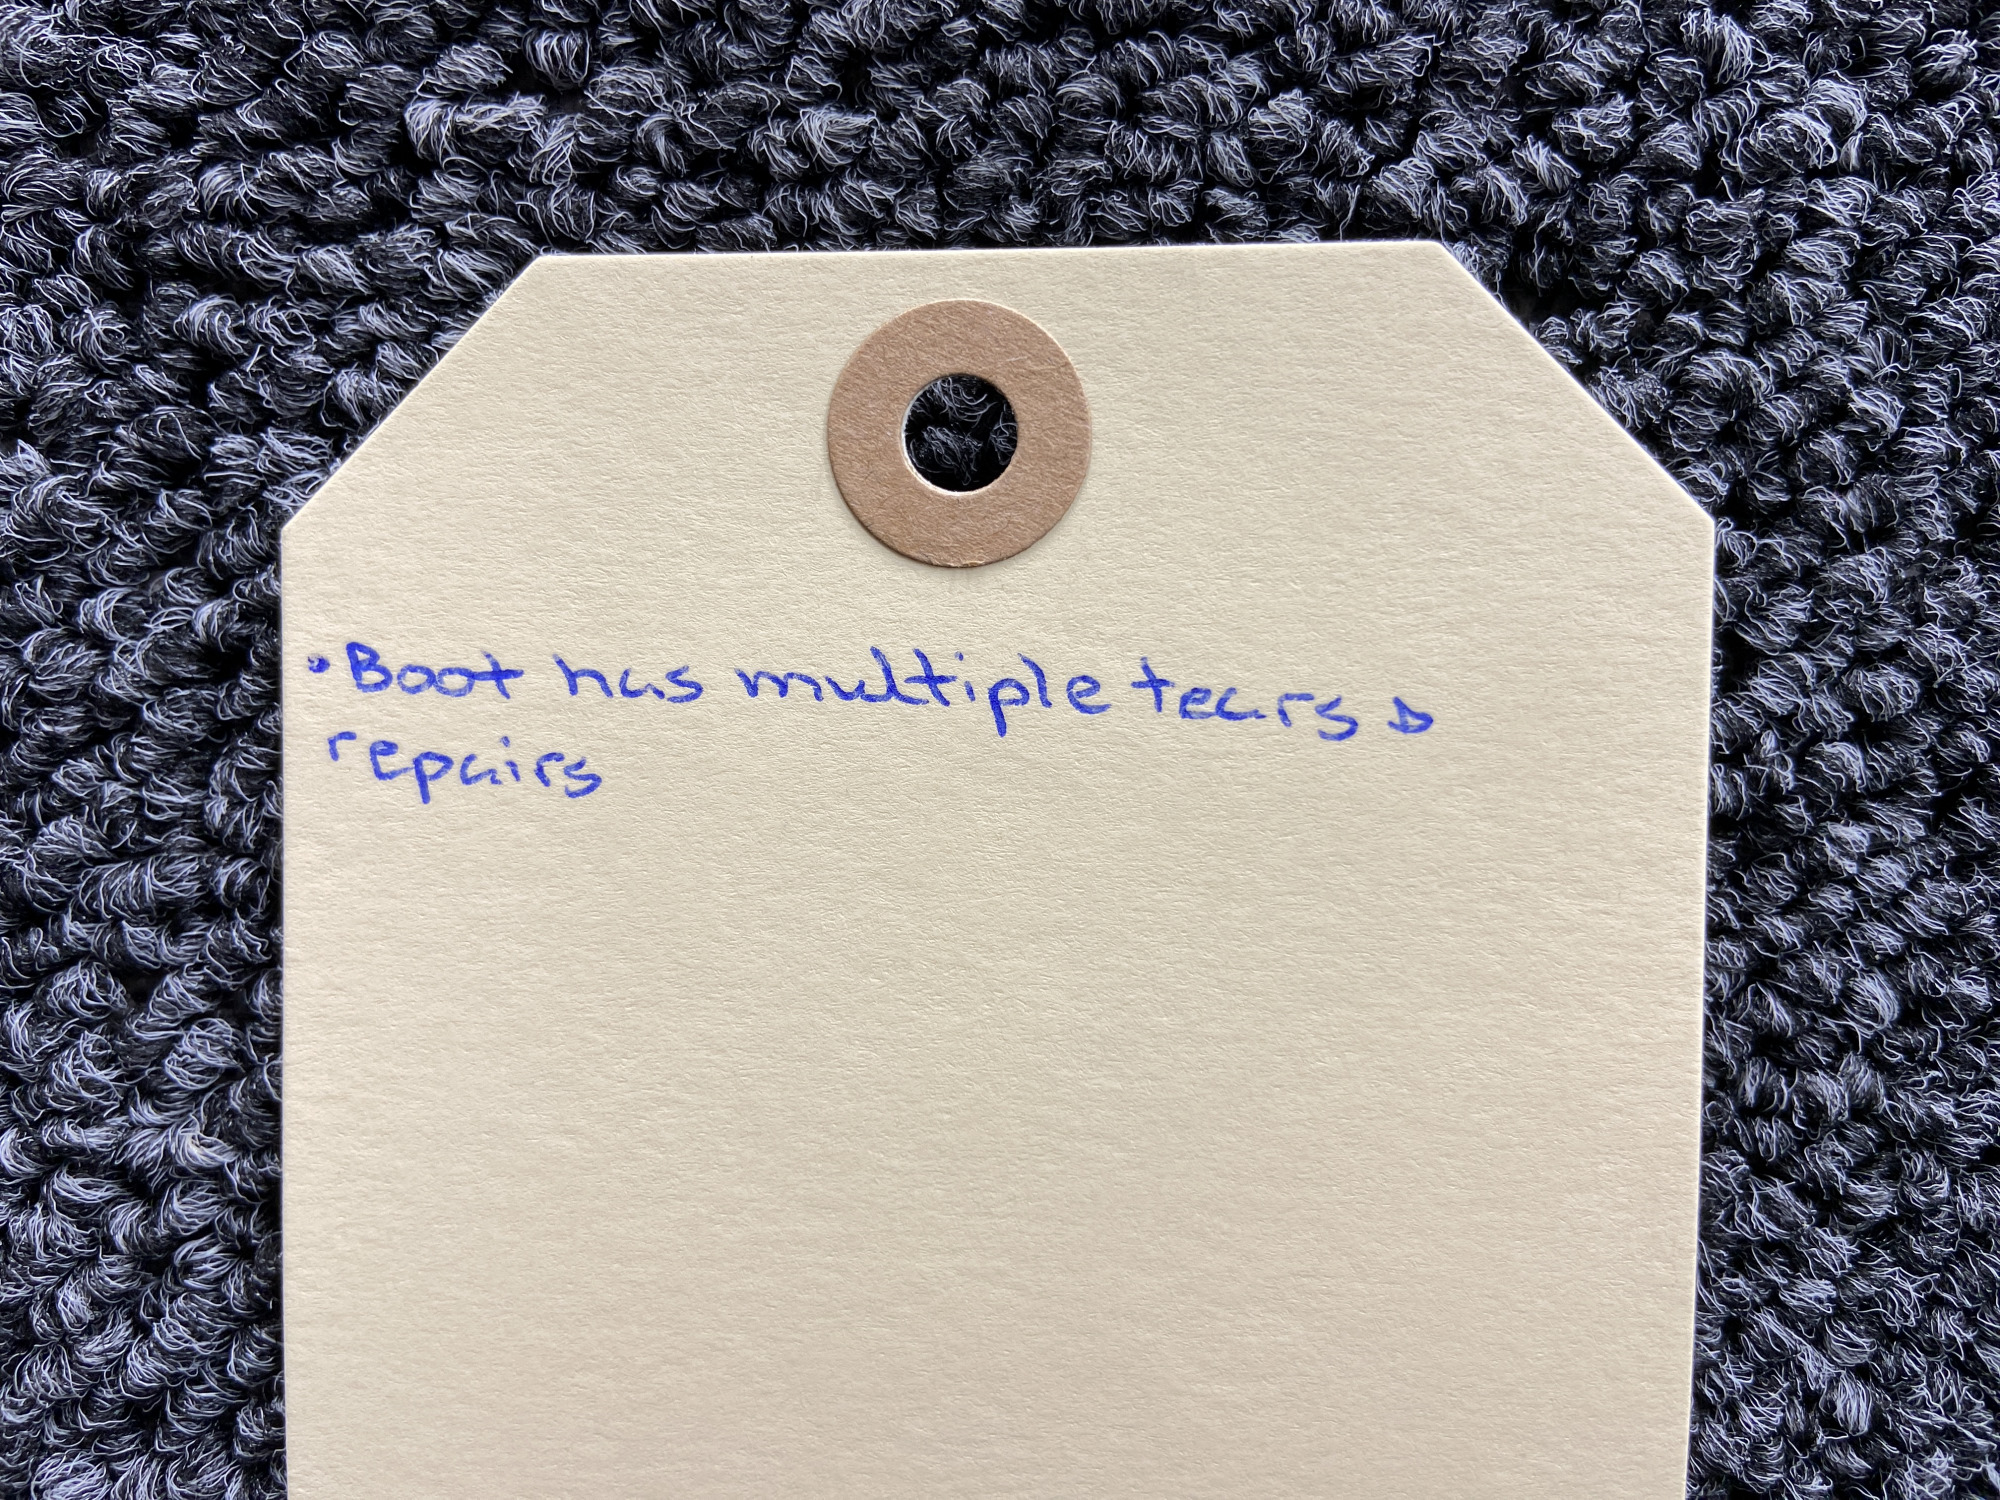 • Boot has multiple tears &
repairs